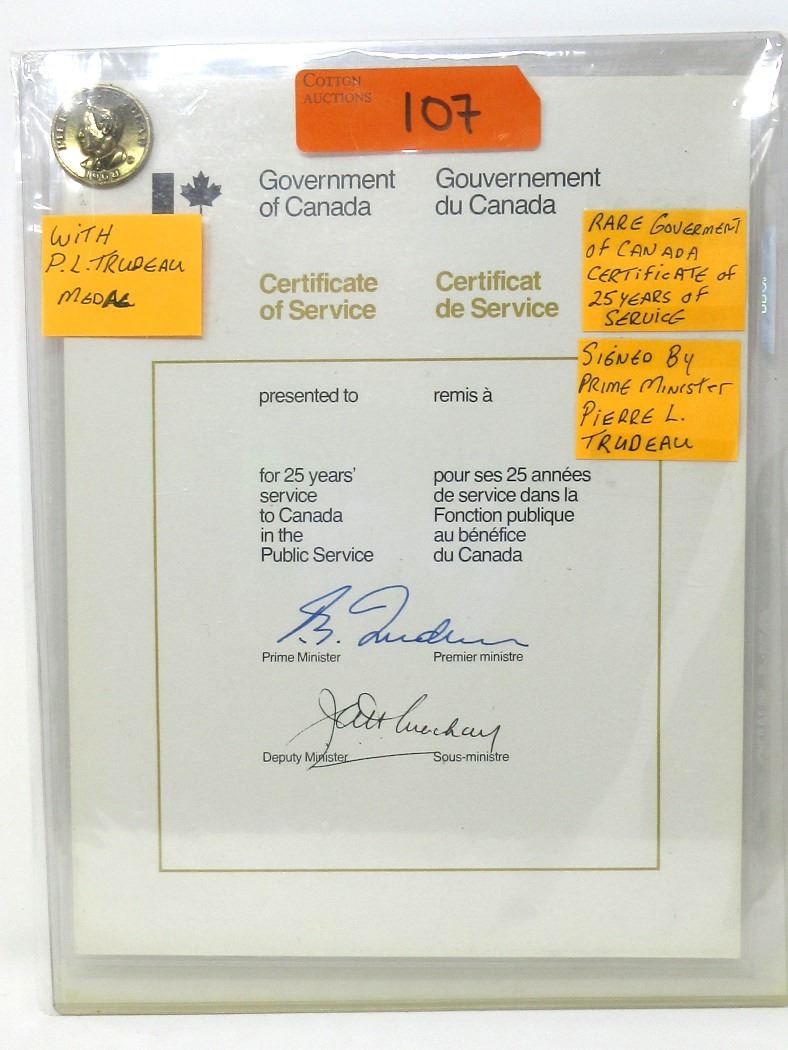 COTTON
AUCTIONS
107
1968
Government
of Canada
Gouvernement
du Canada
WITH
P.L.TRUDEAU
MEDAL
RARE GOVERMENT
of CANADA
CERTIFICATE of
25 YEARS of
SERVICE
Certificate
of Service
Certificat
de Service
SIGNED By
PRIME MINISTER
PIERRE L.
TRUDEAU
presented to
remis à
for 25 years'
service
to Canada
in the
Public Service
pour ses 25 années
de service dans la
Fonction publique
au bénéfice
du Canada
Prime Minister
Premier ministre
Deputy Minister
Sous-ministre